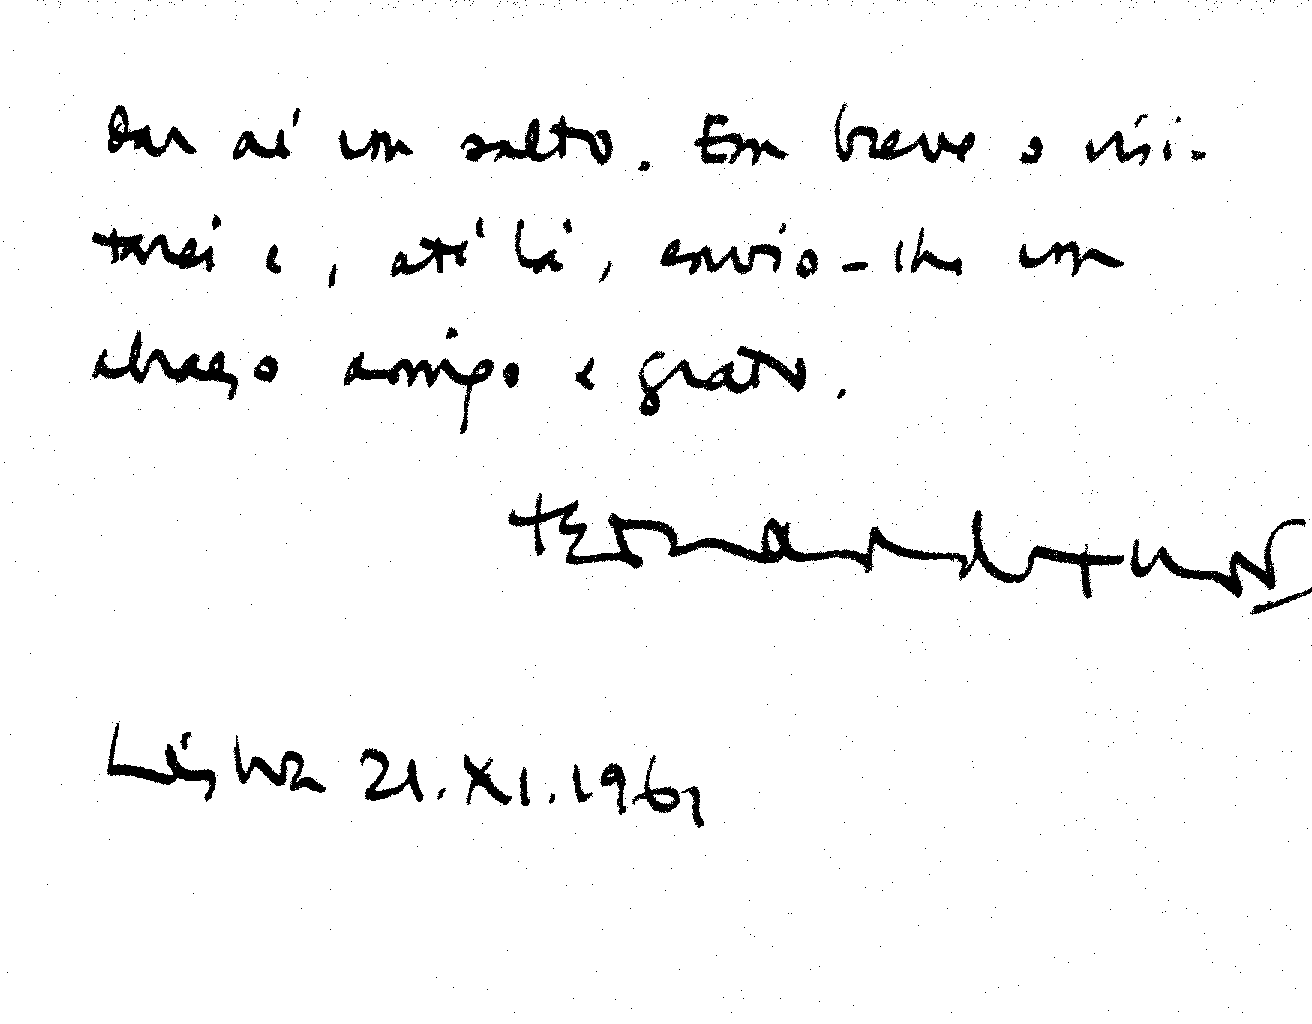 dar aí um salto. Em breve o visi-
tarei e, até lá, envio-lhe um
abraço amigo e grato.
Lisboa 21.XI.1961